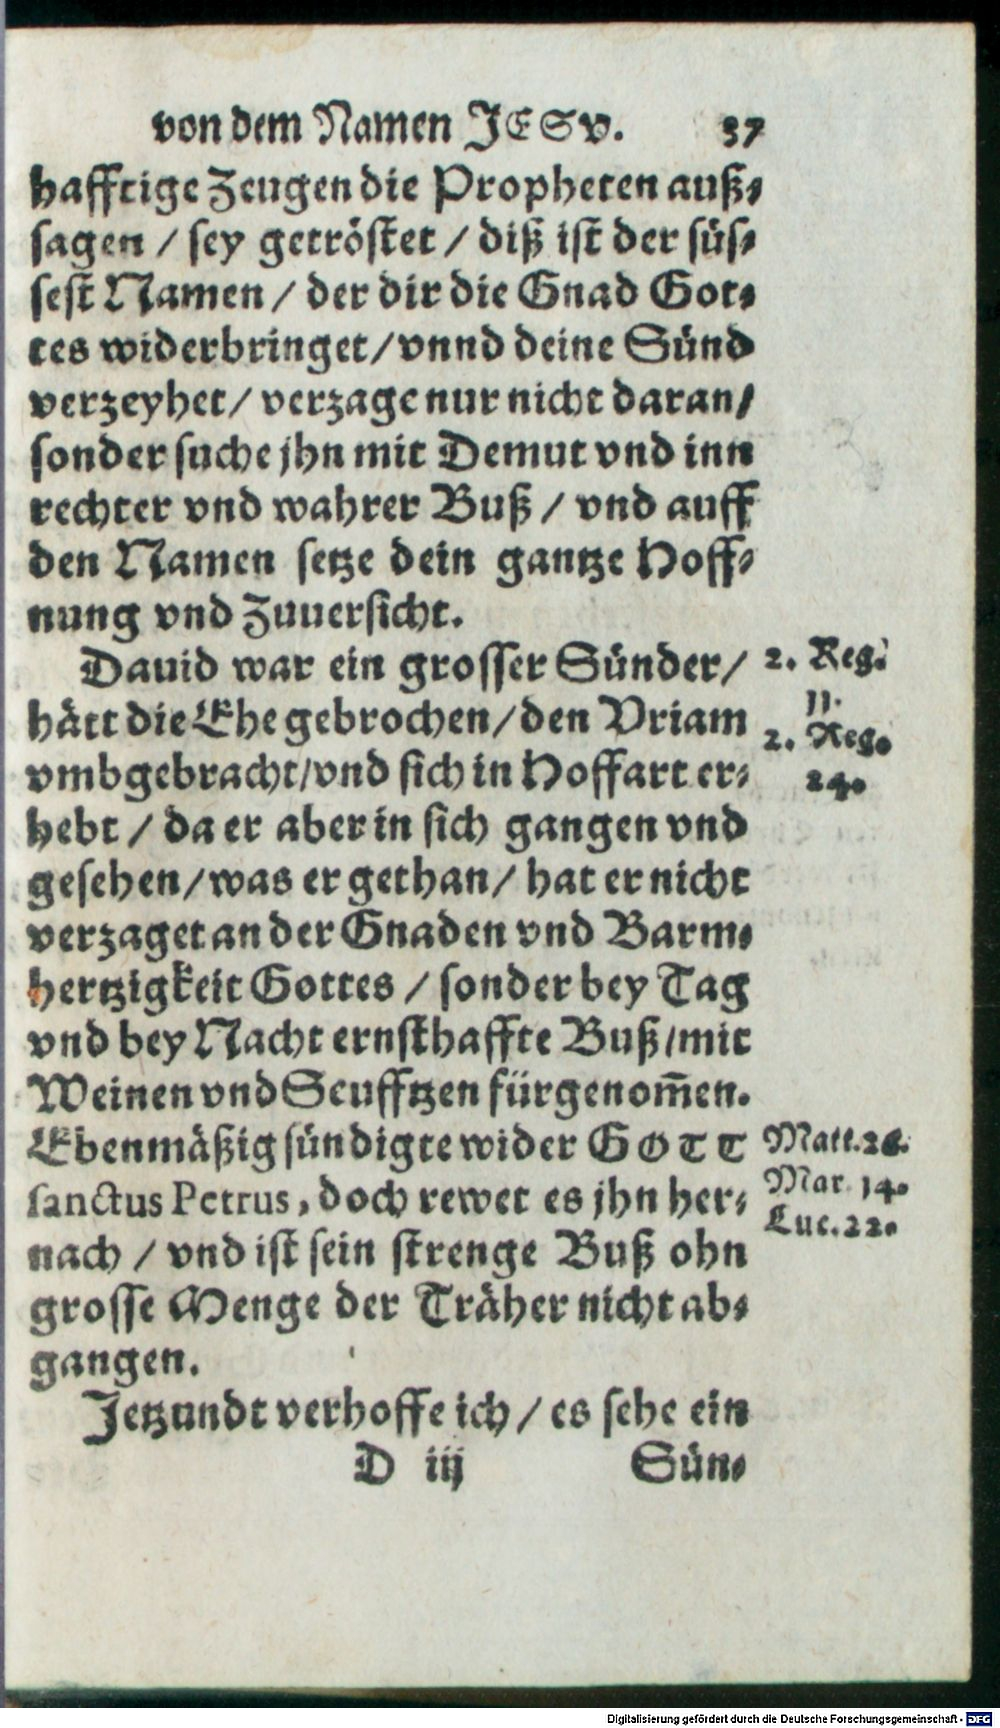 von dem Namen JESV. 37
hafftige Zeugen die Propheten auß⸗
sagen / sey getröstet / diß ist der süs⸗
sest Namen / der dir die Gnad Got⸗
tes widerbringet / vnnd deine Sünd
verzeyhet / verzage nur nicht daran /
sonder suche jhn mit Demut vnd inn
rechter vnd wahrer Buß / vnd auff
den Namen setze dein gantze Hoff⸗
nung vnd Zuuersicht.
Dauid war ein grosser Sünder /
2. Reg.
11.
hätt die Ehe gebrochen / den Vriam
2. Reg.
24.
vmbgebracht / vnd sich in Hoffart er⸗
hebt / da er aber in sich gangen vnd
gesehen / was er gethan / hat er nicht
verzaget an der Gnaden vnd Barm⸗
hertzigkeit Gottes / sonder bey Tag
vnd bey Nacht ernsthaffte Buß / mit
Weinen vnd Seufftzen fürgenom̃en.
Ebenmäßig sündigte wider GOTT
Matt. 26.
sanctus Petrus, doch rewet es jhn her⸗
Mar. 14.
Luc. 22.
nach / vnd ist sein strenge Buß ohn
grosse Menge der Träher nicht ab⸗
gangen.
Jetzundt verhoffe ich / es sehe ein
D iij Sün⸗
Digitalisierung gefördert durch die Deutsche Forschungsgemeinschaft - DFG